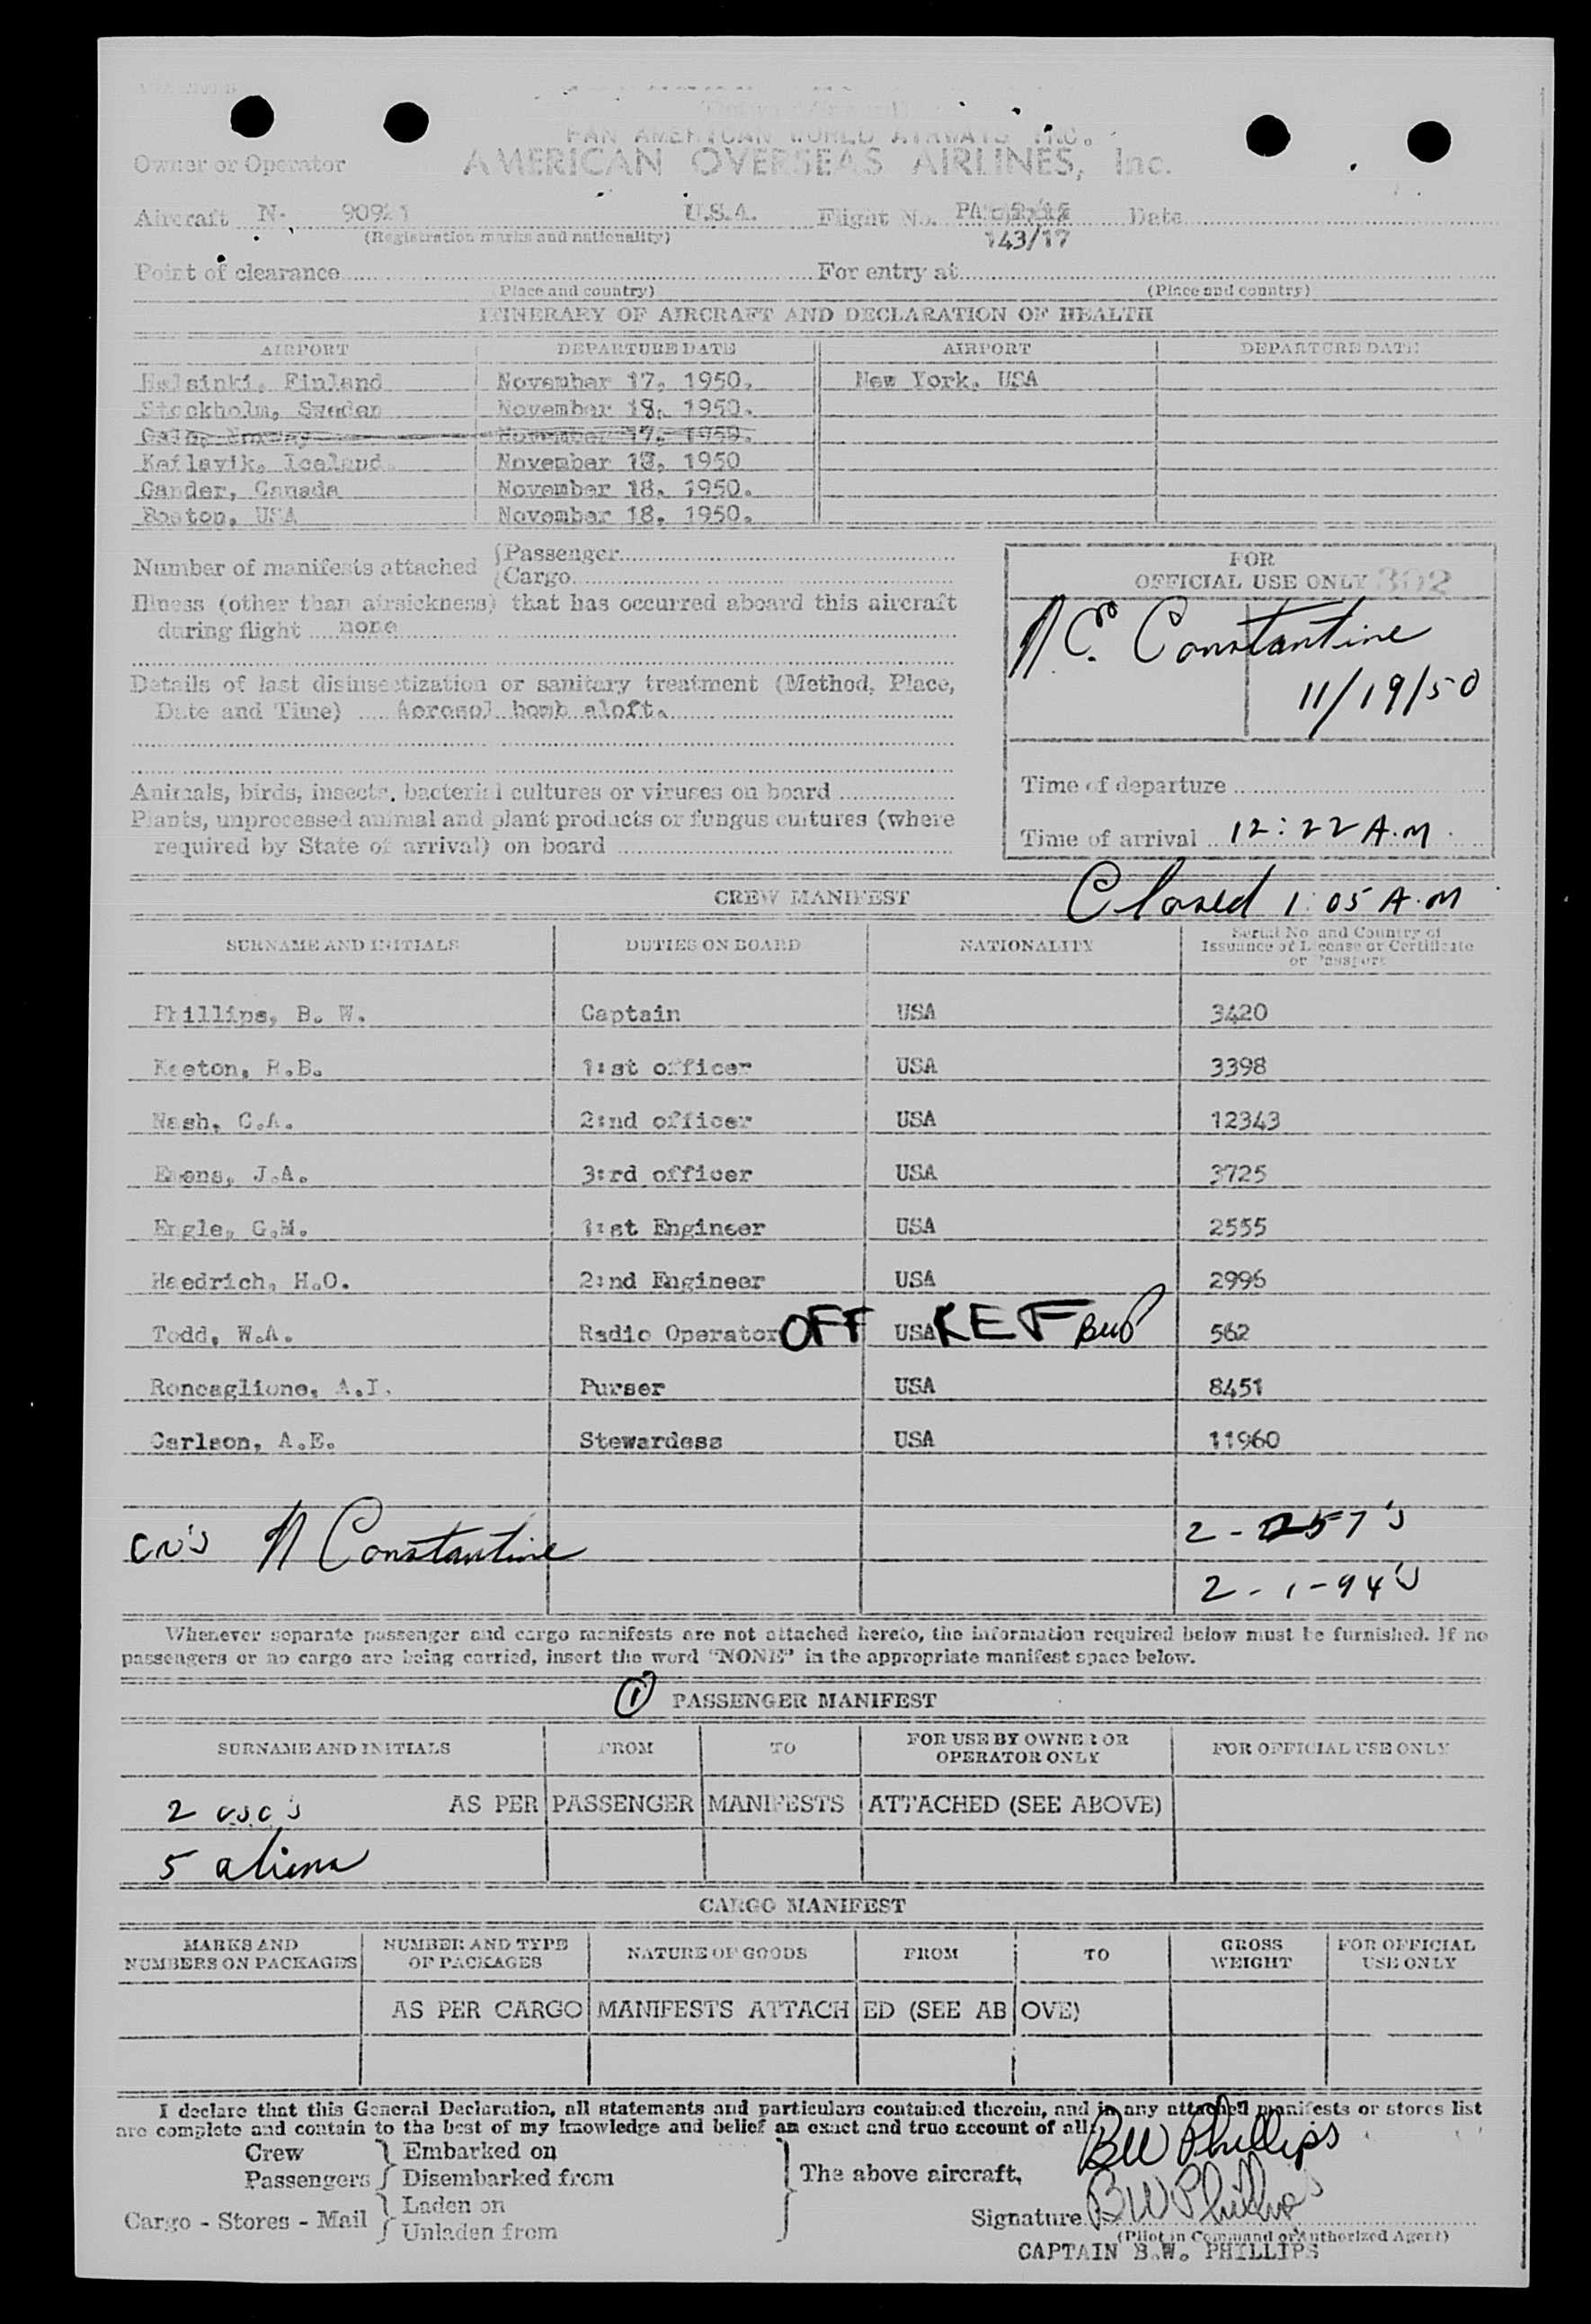 PAN AMERICAN WORLD AIRWAYS INC.
Owner or Operator AMERICAN OVERSEAS AIRLINES, Inc.
Aircraft N- U.S.A. Flight No. PA Date
(Registration marks and nationality) 143/17
Point of clearance For entry at
(Place and country) (Place and country)
ITINERARY OF AIRCRAFT AND DECLARATION OF HEALTH
AIRPORT DEPARTURE DATE AIRPORT DEPARTURE DATE
Helsinki, Finland November 17, 1950. New York, USA
Stockholm, Sweden November 18, 1950.
Oslo, Norway November 17, 1950.
Keflavik, Iceland November 18, 1950
Gander, Canada November 18, 1950.
Boston, USA November 18, 1950.
Number of manifests attached {Passenger
{Cargo
FOR
OFFICIAL USE ONLY 302
Illness (other than airsickness) that has occurred aboard this aircraft
during flight none
N C. Constantine
11/19/50
Details of last disinsectization or sanitary treatment (Method, Place,
Date and Time) Aerosol bomb aloft.
Animals, birds, insects, bacterial cultures or viruses on board
Plants, unprocessed animal and plant products or fungus cultures (where
required by State of arrival) on board
Time of departure
Time of arrival 12:22 A.M.
Closed 1:05 A.M
CREW MANIFEST
SURNAME AND INITIALS DUTIES ON BOARD NATIONALITY Serial No. and Country of
Issuance of License or Certificate
or Passport
Phillips, B. W. Captain USA 3420
Keeton, R.B. 1:st officer USA 3398
Nash, C.A. 2:nd officer USA 12343
Evans, J.A. 3:rd officer USA 3725
Engle, G.M. 1:st Engineer USA 2555
Haedrich, H.O. 2:nd Engineer USA 2996
Todd, W.A. Radio Operator OFF USA KEF BWP 562
Roncaglione, A.I. Purser USA 8451
Carlson, A.E. Stewardess USA 11960
N Constantine 2-257's
2-1-94's
Whenever separate passenger and cargo manifests are not attached hereto, the information required below must be furnished. If no
passengers or no cargo are being carried, insert the word "NONE" in the appropriate manifest space below.
1 PASSENGER MANIFEST
SURNAME AND INITIALS FROM TO FOR USE BY OWNER OR
OPERATOR ONLY FOR OFFICIAL USE ONLY
2 usc's AS PER PASSENGER MANIFESTS ATTACHED (SEE ABOVE)
5 aliens
CARGO MANIFEST
MARKS AND
NUMBERS ON PACKAGES NUMBER AND TYPE
OF PACKAGES NATURE OF GOODS FROM TO GROSS
WEIGHT FOR OFFICIAL
USE ONLY
AS PER CARGO MANIFESTS ATTACHED (SEE ABOVE)
I declare that this General Declaration, all statements and particulars contained therein, and in any attached manifests or stores list
are complete and contain to the best of my knowledge and belief an exact and true account of all:
BW Phillips
Crew } Embarked on
Passengers } Disembarked from } The above aircraft,
Cargo - Stores - Mail } Laden on
} Unladen from
Signature BW Phillips
(Pilot in Command or Authorized Agent)
CAPTAIN B.W. PHILLIPS